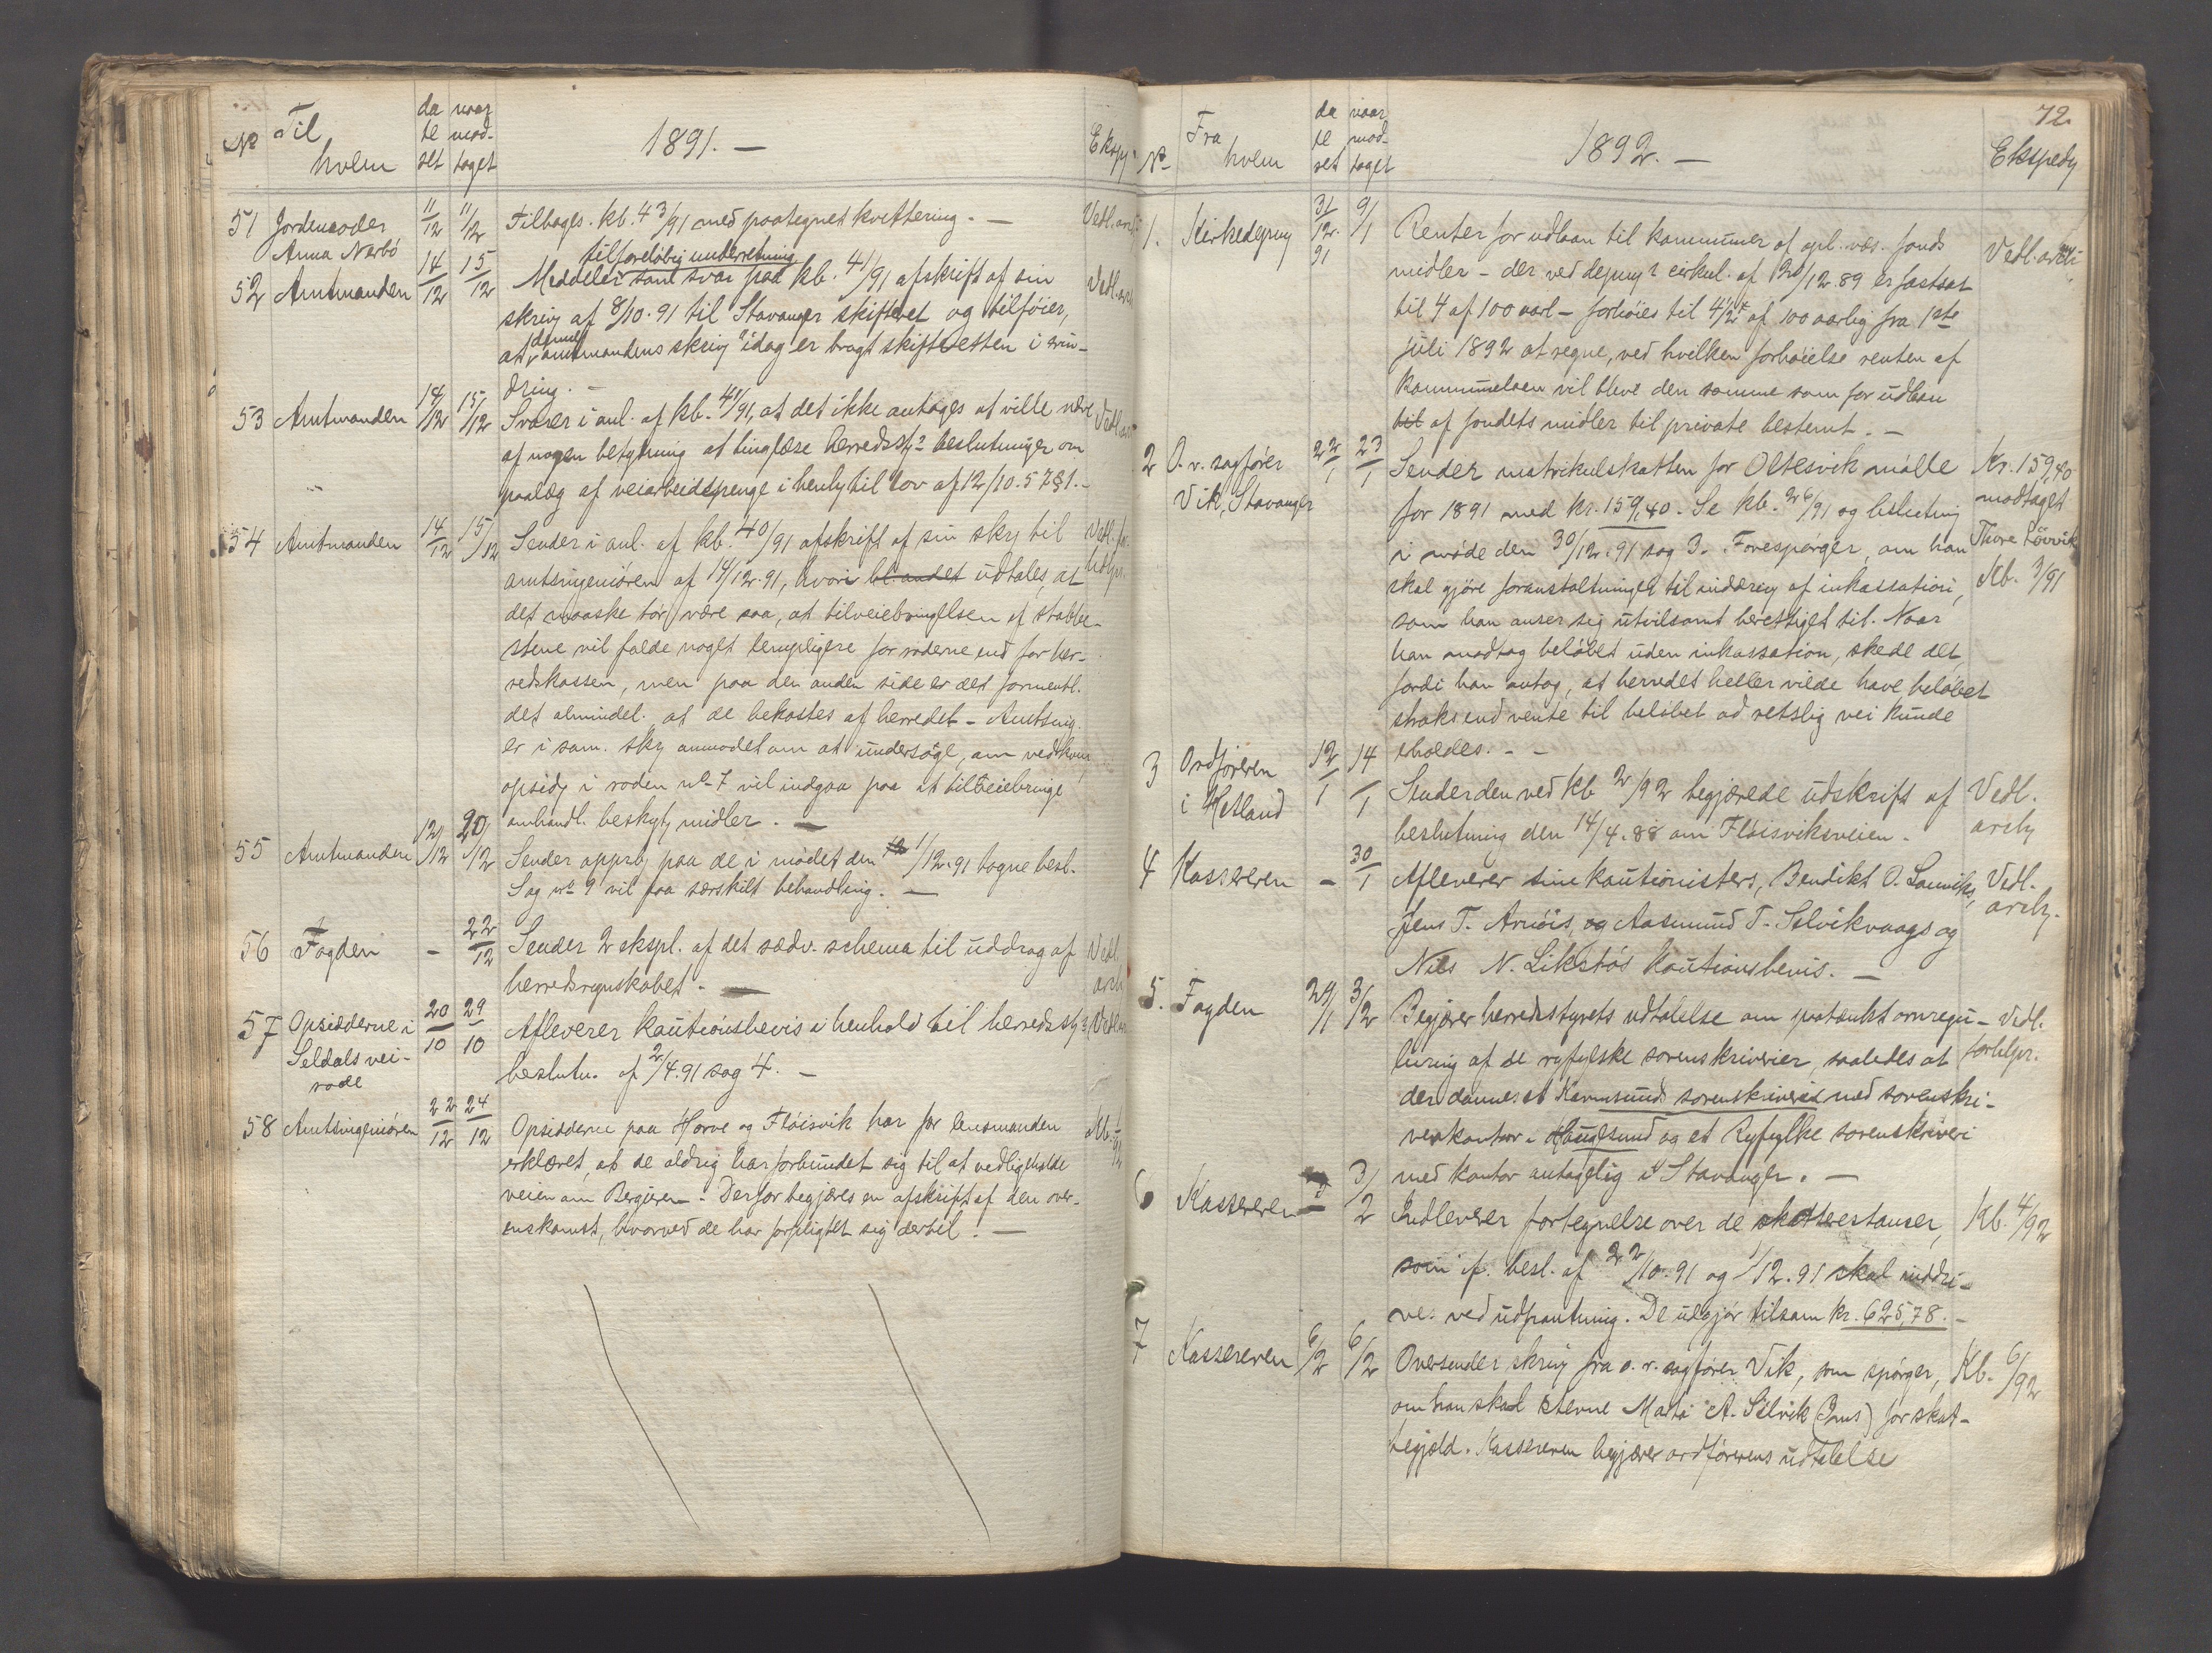 No Til hvem
da te ret
naar mod- taget
1891. —
51 Jordemoder 11/12 11/12 Tilbages. kb. 43/91 med paategnet kvittering. —
Anna Narbö
tilforeløbig underretning
52 Amtmanden 14/12 15/12 Meddeler som svar paa kb. 41/91 afskrift af sin
skriv af 8/10.91 til Stavanger skifteret og tilføier,
at denne amtmandens skriv idag er bragt skifteretten i erin-
dring. —
53 Amtmanden 14/12 15/12 Svarer i anl. af kb. 41/91, at det ikke antages at ville være
af nogen betydning at tinglæse herredsst. beslutninger om
paalæg af veiarbeidspenge i henh. til lov af 12/10.57 §1. —
54 Amtmanden 14/12 15/12 Sender i anl. af kb. 40/91 afskrift af sin skr. til
amtsingeniören af 14/12.91, hvori bl. andet udtales, at
det maaske tör være saa, at tilveiebringelsen af stabbe-
stene vil falde noget lempeligere for roderne end for her-
redskassen, men paa den anden side er det formentl.
det almindel. at de bekostes af herredet — Amtsing.
er i sam. skr. anmodet om at undersøge, om vedkom.
opsid. i roden no 7 vil indgaa paa at tilveiebringe
omhandl. beskyt. midler. —
55 Amtmanden 12/12 20/12 Sender appro. paa de i mødet den 1/12.91 tagne besl.
Sag no 9 vil faa særskilt behandling. —
56 Fogden - 22/12 Sender 2 ekspl. af det sædv. schema til uddrag af
herredsregnskabet. —
57 Opsidderne i 20/10 29/10 Afleverer kautionsbevis i henhold til herredsst.
Seldals vei- beslutn. af 2/4.91 sag 4. —
rode
58 Amtsingeniören 22/12 24/12 Opsidderne paa Horve og Fløisvik har for lensmanden
erklæret, at de aldrig har forbundet sig til at vedligeholde
veien om Bergieren. Derfor begjæres en afskrift af den over-
enskomst, hvorved de har forpligtet sig dertil. —
72.
No Fra hvem
da te ret
naar mod- taget
1892. —
Ekspedy
1. Kirkedep 31/12.91 9/1 Renter for udlaan til kommuner af opl. væs. fonds
midler — der ved dep. cirkul. af 20/12.89 er fastsat
til 4 af 100 aarl — forhøies til 4 1/2 af 100 aarlig fra 1ste
juli 1892 at regne, ved hvilken forhøielse renten af
kommunelaan vil blive den samme som for udlaan
til af fondets midler til private bestemt. —
Vedl. arch
2 O. r. sagfører 22/1 23/1 Sender matrikulskatten for Oltesvik mølle
Vik, Stavanger for 1891 med kr. 159,40. Se kb. 26/91 og beslutning
i møde den 30/12.91 sag 3. Forespørger, om han
skal gjøre foranstaltninger til inddriv. af inkassation,
som han anser sig utvilsomt berettiget til. Naar
han modtog beløbet uden inkassation, skede det,
fordi han antog, at herredet heller vilde have beløbet
straks end vente til beløbet ad retslig vei kunde
erholdes. —
Kr. 159,40
modtaget
Thore Lövvik
Kb. 3/91
3 Ordføreren 12/1 14/1 Sender den ved kb 2/92 begjærede udskrift af
i Hetland beslutning den 14/4.88 om Fløisviksveien.
Vedl. arch
4 Kassereren - 30/1 Afleverer sine kautionisters, Bendikt O. Lauviks,
Jens T. Arnöis, og Aasmund T. Selvikvaags og
Nils N. Likstös kautionsbevis. —
Vedl. arch.
5. Fogden 29/1 3/2 Begjærer herredsstyrets udtalelse om paatænkt omregu-
lering af de ryfylkske sorenskriverier, saaledes at
der dannes et Karmsunds sorenskriveri med sorenskri-
verkontor i Haugesund og et Ryfylke sorenskriveri
med kontor antagelig i Stavanger. —
Vedl. forhpr.
6 Kassereren - 3/2 Indleverer fortegnelse over de skatterestanser,
som if. besl. af 22/10.91 og 1/12.91 skal inddri-
ves ved udpantning. De udgjør tilsam kr. 625,78. —
Kb. 4/92
7 Kassereren 6/2 6/2 Oversender skriv fra o. r. sagfører Vik, som spørger,
om han skal stevne Marta A. Selvik for skat-
tegjæld. Kassereren begjærer ordførerens udtalelse
Kb. 6/92